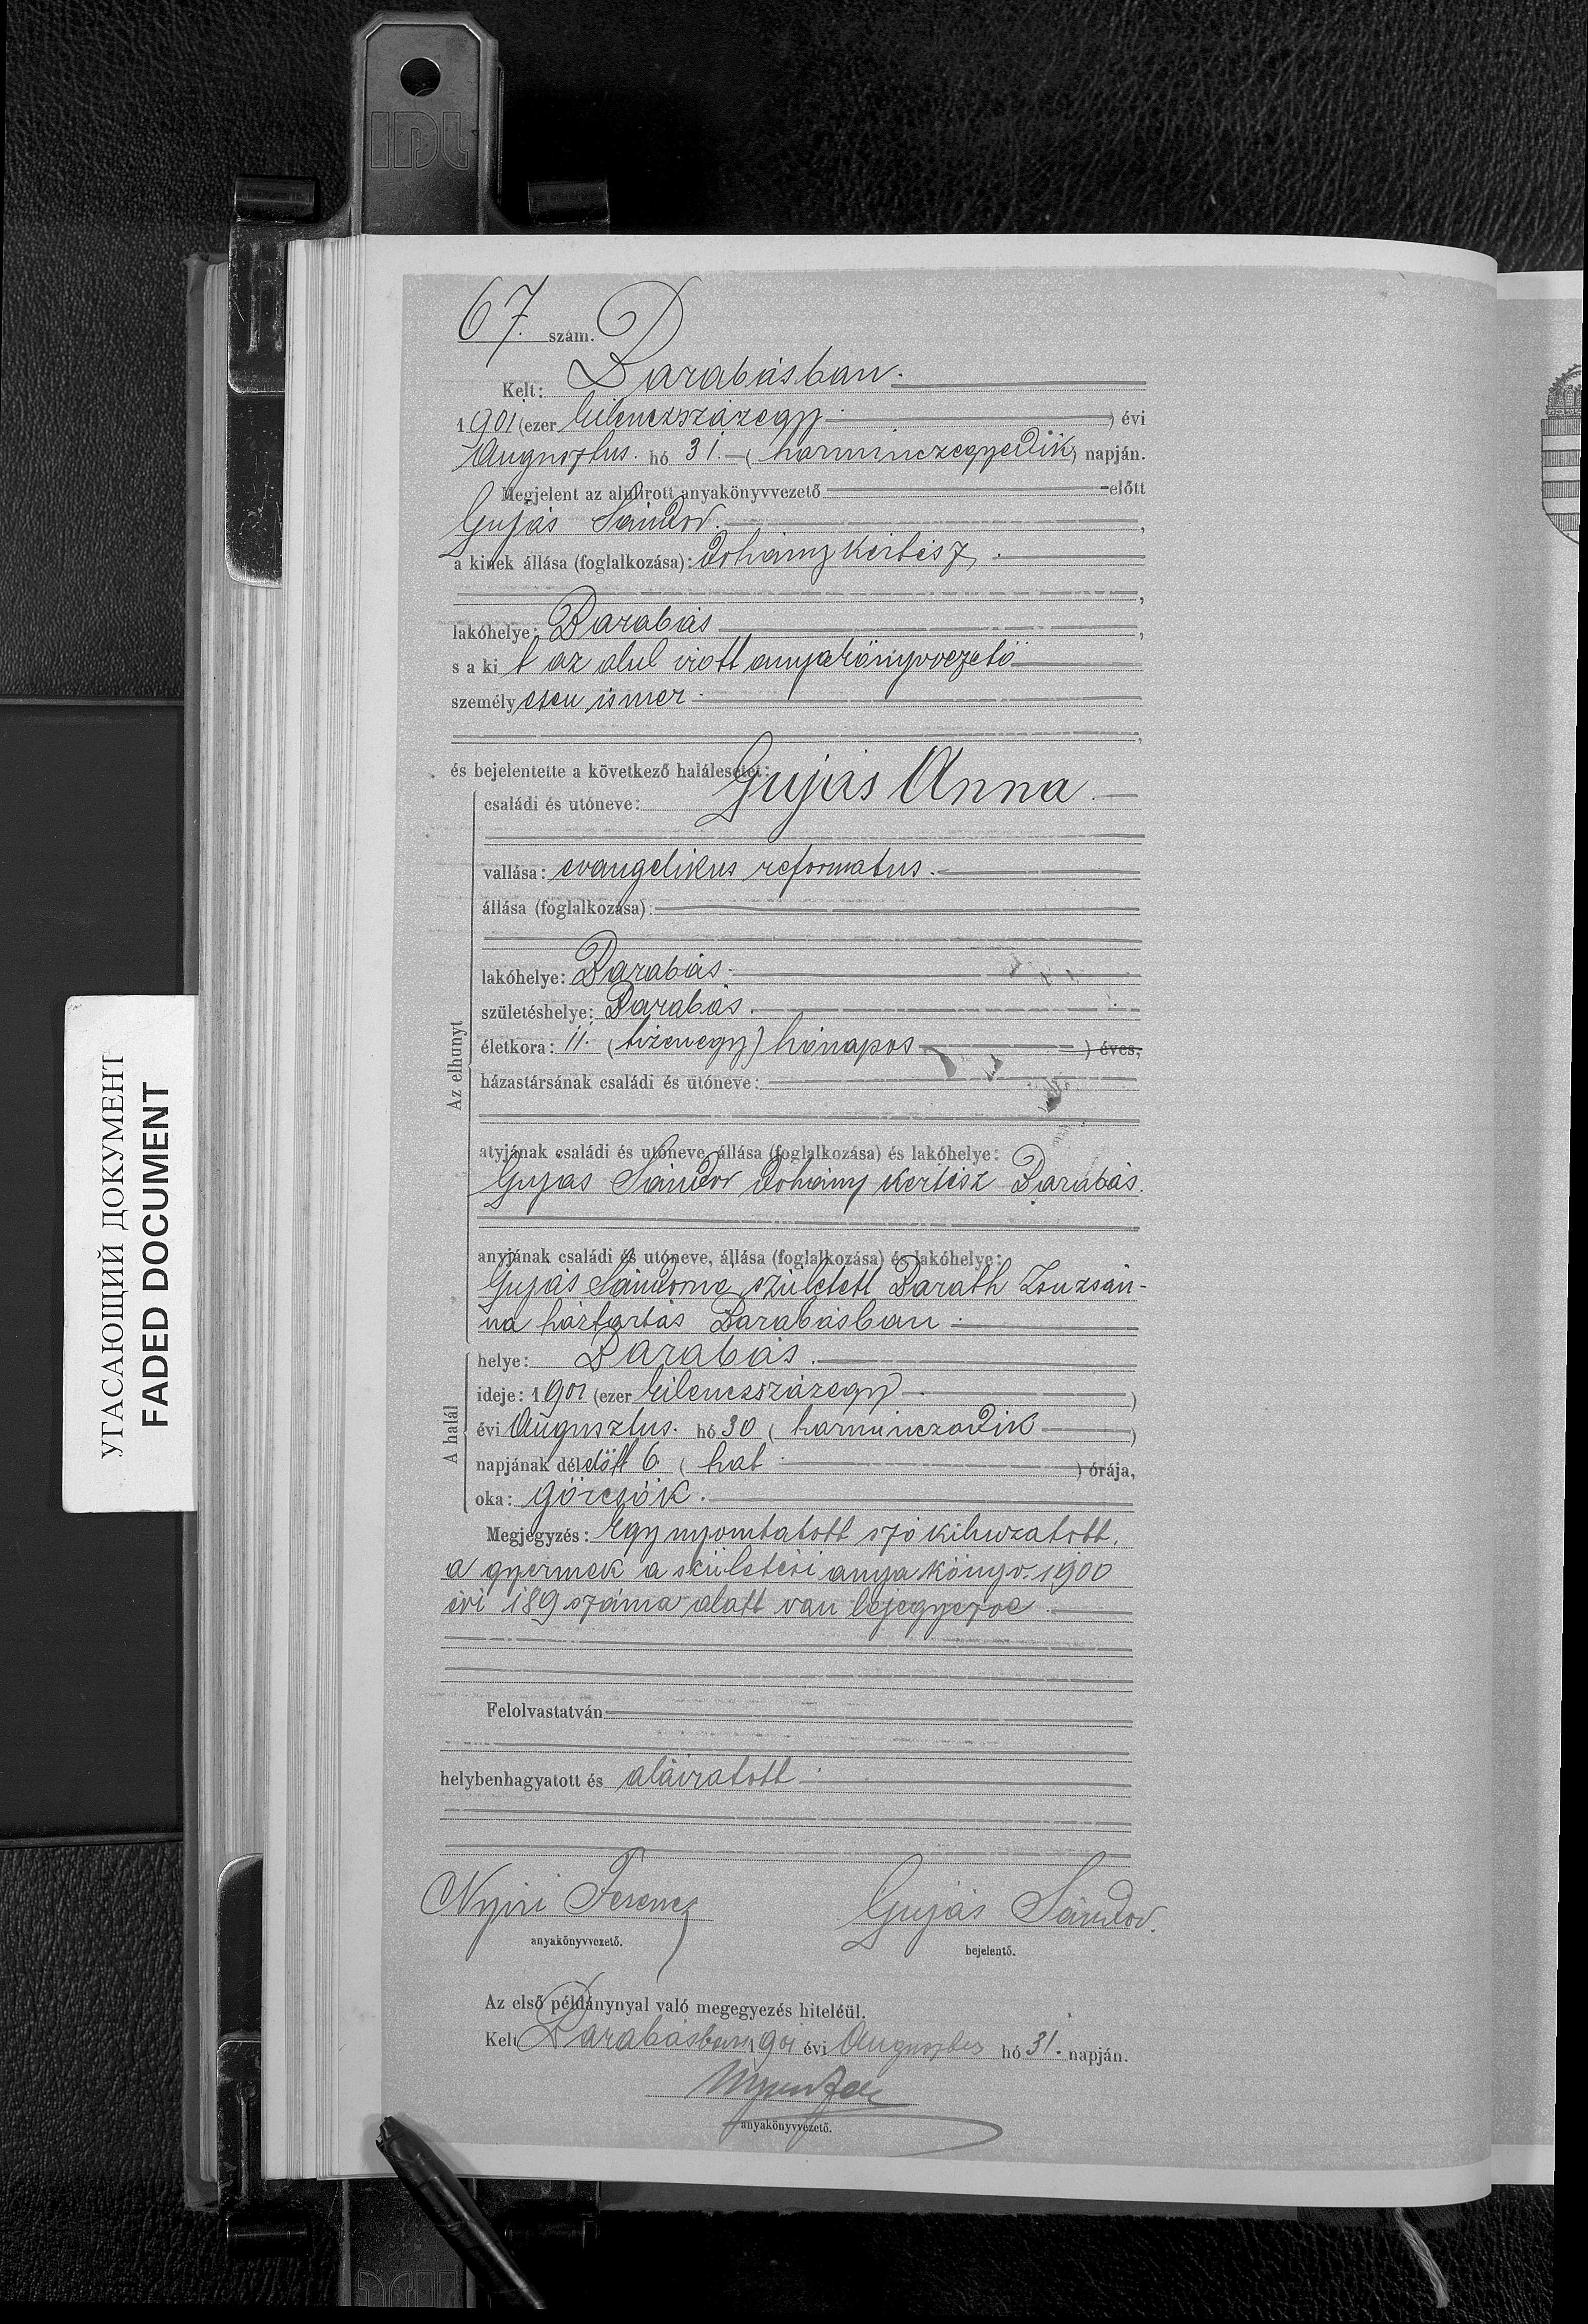 IDL
67. szám.
Kelt: Darabásban.
1901 (ezer kilenczszázegy ) évi
Augusztus. hó 31. ( harminczegyedik ) napján.
Megjelent az alulirott anyakönyvvezető előtt
Gujás Sándor.
a kinek állása (foglalkozása): dohány kertész.
lakóhelye: Darabás
s a ki t az alul irott anyakönyvvezető
személy esen ismer.
és bejelentette a következő halálesetet:
családi és utóneve: Gujás Anna
Az elhunyt
vallása: evangelikus reformatus.
állása (foglalkozása):
lakóhelye: Darabás
születéshelye: Darabás.
életkora: 11. (tizenegy) hónapos ) éves,
házastársának családi és utóneve:
atyjának családi és utóneve, állása (foglalkozása) és lakóhelye:
Gujas Sándor dohány kertész Darabás.
anyjának családi és utóneve, állása (foglalkozása) és lakóhelye:
Gujás Sándorna született Barath Zsuzsán-
na háztartás Darabásban.
A halál
helye: Darabás.
ideje: 1901 (ezer kilenczszázegy )
évi Augusztus. hó 30 ( harminczadik )
napjának délelött 6 ( hat ) órája,
oka: görcsök.
Megjegyzés: Egy nyomtatott szó kihuzatott.
a gyermek a születési anya könyv. 1900
évi 189 száma alatt van bejegyezve
Felolvastatván
helybenhagyatott és aláiratott.
Nyiri Ferencz
anyakönyvvezető.
Gujás Sándor.
bejelentő.
Az első példánynyal való megegyezés hiteléül.
Kelt Darabásban 1901 évi Augusztus hó 31. napján.
anyakönyvvezető.
УГАСАЮЩИЙ ДОКУМЕНТ
FADED DOCUMENT